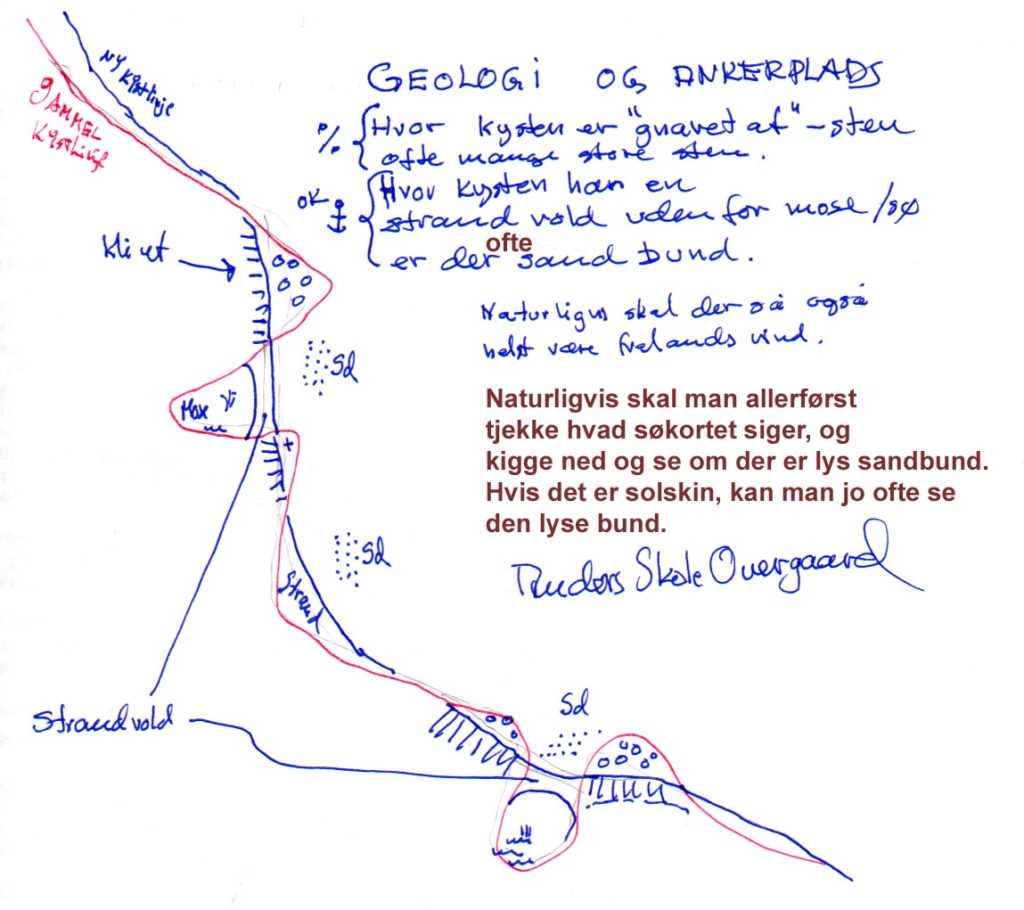 GEOLOGI OG ANKERPLADS
NY Kystlinje
GAMMEL
Kystlinje
%. Hvor kysten er "gnavet af" - sten
ofte mange store sten.
OK Hvor kysten har en
strand vold uden for mose/sø
ofte
er der sand bund.
Klint
Naturligvis skal der så også
helst være fralands vind.
Sd
Mose
Naturligvis skal man allerførst
tjekke hvad søkortet siger, og
kigge ned og se om der er lys sandbund.
Hvis det er solskin, kan man jo ofte se
den lyse bund.
+
Sd
Strand
Skole Overgaard
Strandvold
Sd